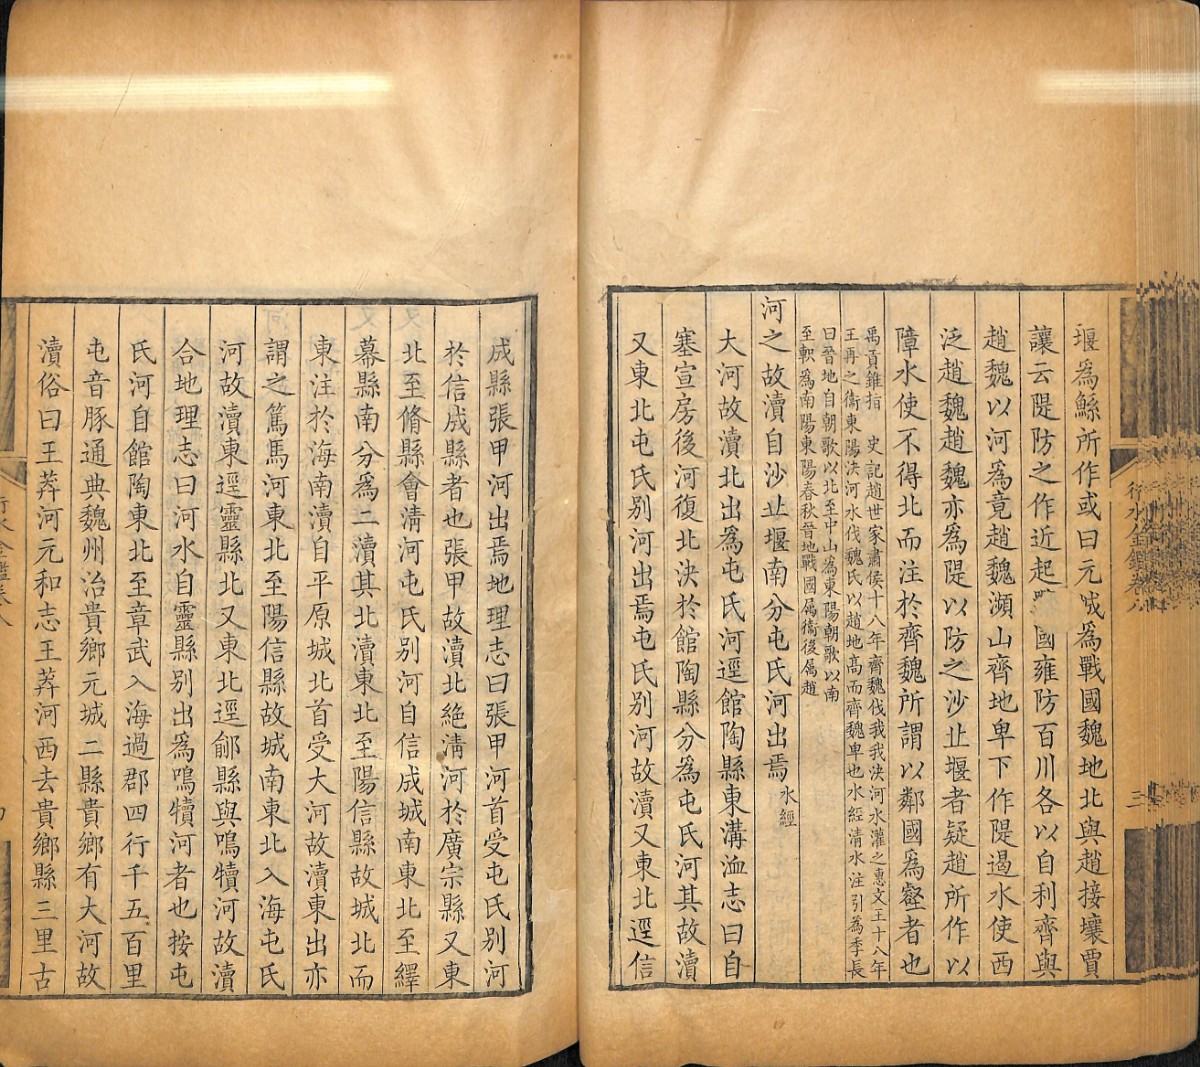 堰爲鯀所作或曰元城爲戰國魏地北與趙接壤賈
讓云隄防之作近起戰國雍防百川各以自利齊與
趙魏以河爲竟趙魏瀕山齊地卑下作隄遏水使西
泛趙魏趙魏亦爲隄以防之沙丘堰者疑趙所作以
障水使不得北而注於齊魏所謂以鄰國爲壑者也
禹貢錐指 史記趙世家肅侯十八年齊魏伐我我決河水灌之惠文王十八年
王再之衞東陽決河水伐魏氏以趙地高而齊魏卑也水經淸水注引爲季長
曰晉地自朝歌以北至中山爲東陽朝歌以南
至軹爲南陽東陽春秋晉地戰國属衞後属趙
河之故瀆自沙丘堰南分屯氏河出焉水經
大河故瀆北出爲屯氏河逕館陶縣東溝洫志曰自
塞宣房後河復北決於館陶縣分爲屯氏河其故瀆
又東北屯氏別河出焉屯氏別河故瀆又東北逕信
成縣張甲河出焉地理志曰張甲河首受屯氏別河
於信成縣者也張甲故瀆北絶淸河於廣宗縣又東
北至脩縣會淸河屯氏別河自信成城南東北至繹
幕縣南分爲二瀆其北瀆東北至陽信縣故城北而
東注於海南瀆自平原城北首受大河故瀆東出亦
謂之篤馬河東北至陽信縣故城南東北入海屯氏
河故瀆東逕靈縣北又東北逕鄃縣與鳴犢河故瀆
合地理志曰河水自靈縣別出爲鳴犢河者也按屯
氏河自館陶東北至章武入海過郡四行千五百里
屯音豚通典魏州治貴鄉元城二縣貴鄉有大河故
瀆俗曰王莽河元和志王莽河西去貴鄉縣三里古
行水金鑑卷八
三